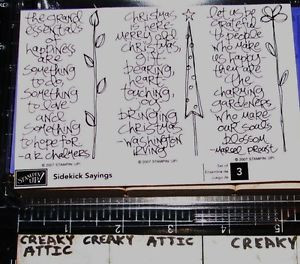 the grand
essentials
of
happiness
are
something
to do,
something
to love
and
something
to hope for.
-a.k. chalmers
© 2007 STAMPIN' UP!
Christmas
is here,
merry old
Christmas,
gift
bearing,
heart
touching,
joy
bringing
Christmas
-washington
irving
© 2007 STAMPIN' UP!
let us be
grateful
to people
who make
us happy-
they are
the
charming
gardeners
who make
our souls
blossom.
-marcel proust
© 2007 STAMPIN' UP!
STAMPIN' UP!
Sidekick Sayings
Set of
Ensemble de
Juego de
3
1
2
3
4
5
CREAKY CREAKY ATTIC CREAKY
ATTIC